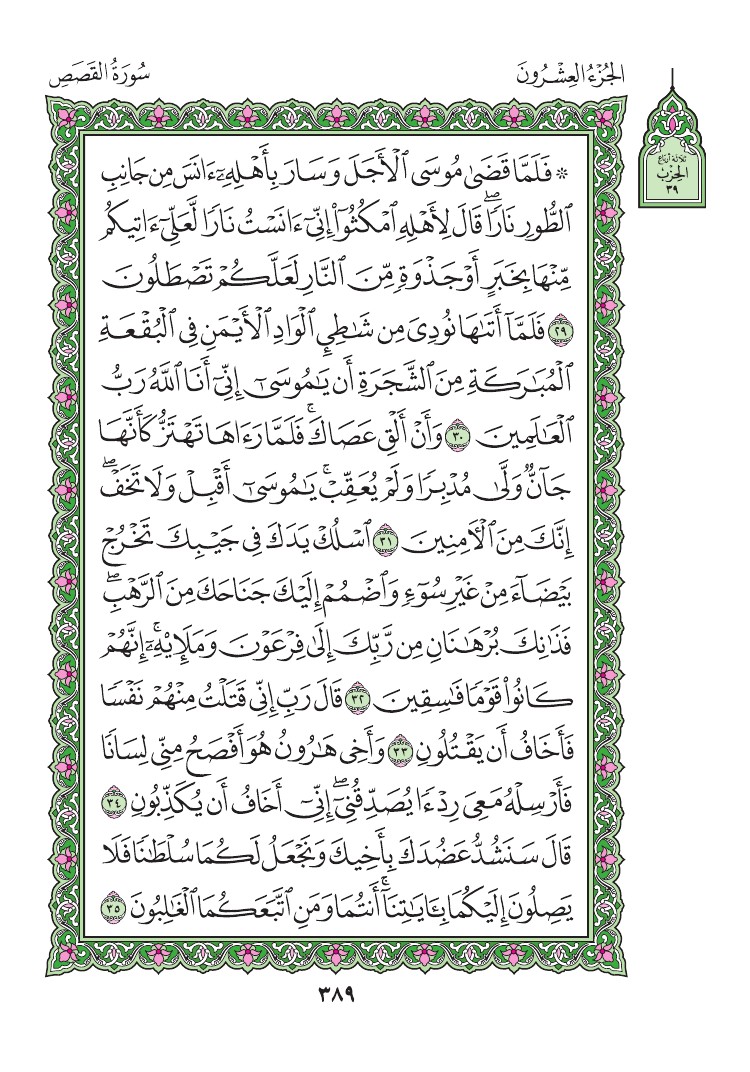 الجُزْءُ العِشْرُونَ
سُورَةُ القَصَصِ
ثلاثة أرباع
الحِزْب
٣٩
۞ فَلَمَّا قَضَىٰ مُوسَى ٱلْأَجَلَ وَسَارَ بِأَهْلِهِۦٓ ءَانَسَ مِن جَانِبِ
ٱلطُّورِ نَارًاۖ قَالَ لِأَهْلِهِ ٱمْكُثُوٓا۟ إِنِّىٓ ءَانَسْتُ نَارًا لَّعَلِّىٓ ءَاتِيكُم
مِّنْهَا بِخَبَرٍ أَوْ جَذْوَةٍ مِّنَ ٱلنَّارِ لَعَلَّكُمْ تَصْطَلُونَ
٢٩ فَلَمَّآ أَتَىٰهَا نُودِىَ مِن شَٰطِئِ ٱلْوَادِ ٱلْأَيْمَنِ فِى ٱلْبُقْعَةِ
ٱلْمُبَٰرَكَةِ مِنَ ٱلشَّجَرَةِ أَن يَٰمُوسَىٰٓ إِنِّىٓ أَنَا ٱللَّهُ رَبُّ
ٱلْعَٰلَمِينَ ٣٠ وَأَنْ أَلْقِ عَصَاكَۚ فَلَمَّا رَءَاهَا تَهْتَزُّ كَأَنَّهَا
جَآنٌّ وَلَّىٰ مُدْبِرًا وَلَمْ يُعَقِّبْۚ يَٰمُوسَىٰٓ أَقْبِلْ وَلَا تَخَفْۖ
إِنَّكَ مِنَ ٱلْءَامِنِينَ ٣١ ٱسْلُكْ يَدَكَ فِى جَيْبِكَ تَخْرُجْ
بَيْضَآءَ مِنْ غَيْرِ سُوٓءٍ وَٱضْمُمْ إِلَيْكَ جَنَاحَكَ مِنَ ٱلرَّهْبِۖ
فَذَٰنِكَ بُرْهَٰنَانِ مِن رَّبِّكَ إِلَىٰ فِرْعَوْنَ وَمَلَإِي۟هِۦٓۚ إِنَّهُمْ
كَانُوا۟ قَوْمًا فَٰسِقِينَ ٣٢ قَالَ رَبِّ إِنِّى قَتَلْتُ مِنْهُمْ نَفْسًا
فَأَخَافُ أَن يَقْتُلُونِ ٣٣ وَأَخِى هَٰرُونُ هُوَ أَفْصَحُ مِنِّى لِسَانًا
فَأَرْسِلْهُ مَعِىَ رِدْءًا يُصَدِّقُنِىٓۖ إِنِّىٓ أَخَافُ أَن يُكَذِّبُونِ ٣٤
قَالَ سَنَشُدُّ عَضُدَكَ بِأَخِيكَ وَنَجْعَلُ لَكُمَا سُلْطَٰنًا فَلَا
يَصِلُونَ إِلَيْكُمَا بِـَٔايَٰتِنَآۚ أَنتُمَا وَمَنِ ٱتَّبَعَكُمَا ٱلْغَٰلِبُونَ ٣٥
٣٨٩